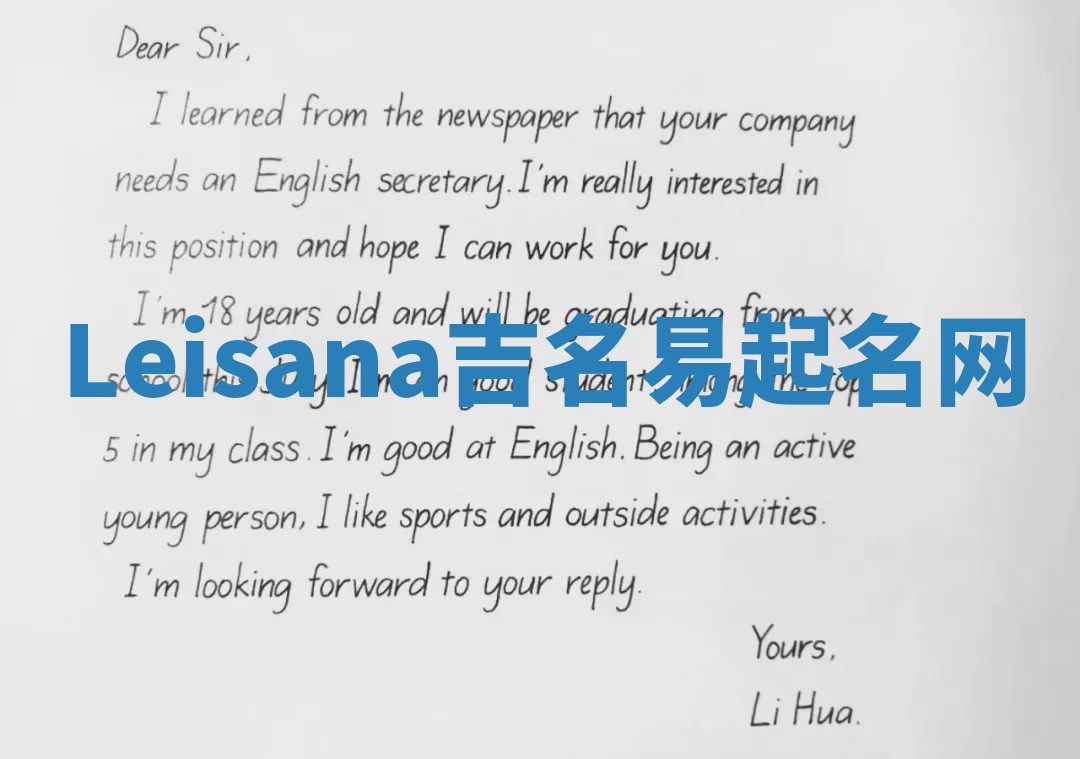 Dear Sir,
I learned from the newspaper that your company
needs an English secretary. I'm really interested in
this position and hope I can work for you.
I'm 18 years old and will be graduating from xx
Leisana吉名易起名网
school this July. I'm good student among the top
5 in my class. I'm good at English. Being an active
young person, I like sports and outside activities.
I'm looking forward to your reply.
Yours,
Li Hua.